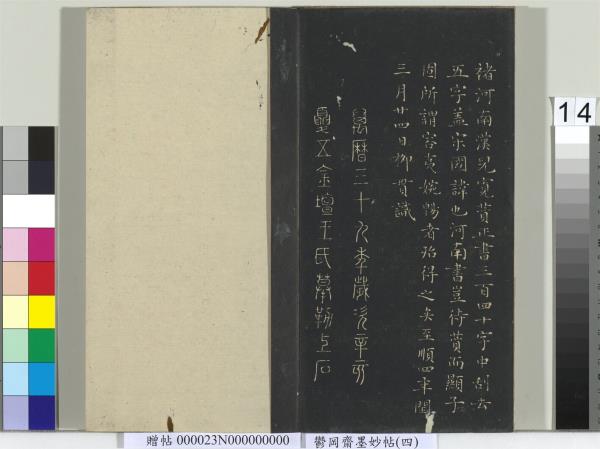 褚河南漢兒寬贊正書三百四十字中刮去
五字蓋宋國諱也河南書豈待贊而顯子
固所謂容夷婉暢者殆得之矣至順四年閏
三月廿四日柳貫識
萬曆三十八年歲次辛亥
夏五金壇王氏摹勒上石
14
贈帖 000023N000000000
鬱岡齋墨妙帖(四)